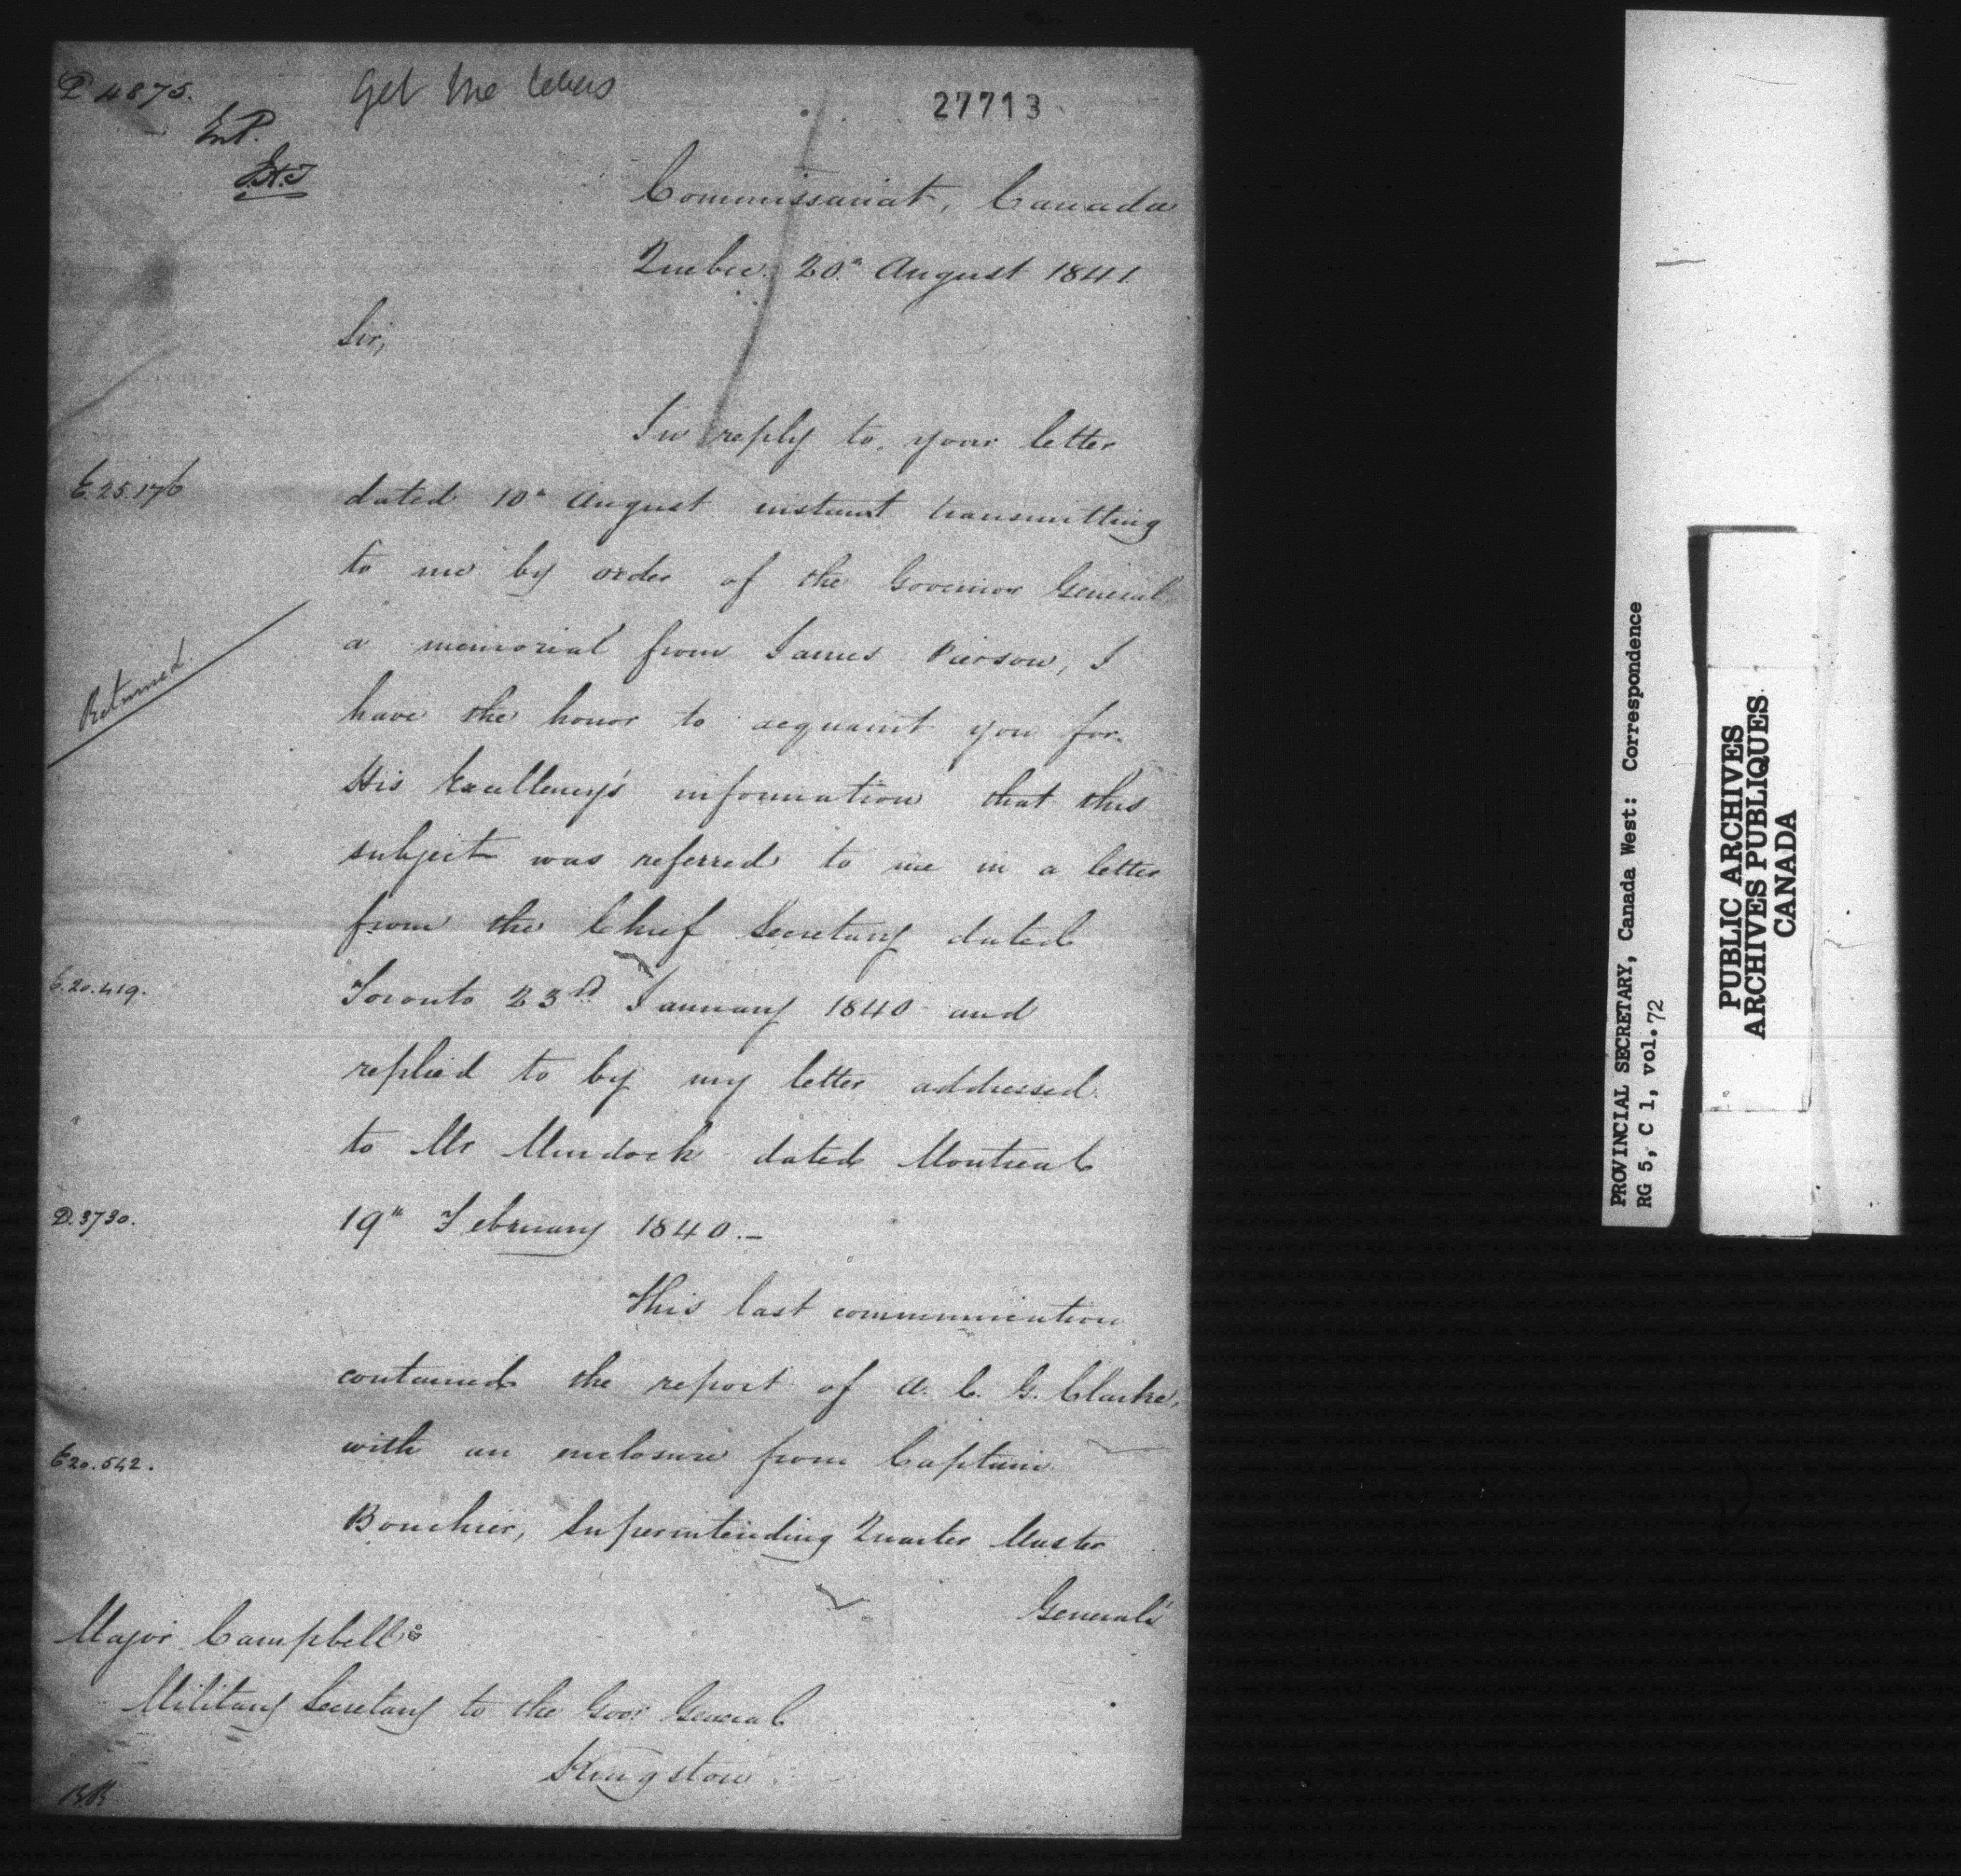 P 4875.
Get the letters
27713
Commissariat, Canada
Quebec. 20th August 1841.
Sir,
In reply to your letter
E.25.176
dated 10th August instant transmitting
to me by order of the Governor General
a memorial from James Pierson, I
Returned
have the honor to acquaint you for
His Excellency's information that this
subject was referred to me in a letter
from the Chief Secretary dated
E.20.419.
Toronto 23rd January 1840 and
replied to by my letter addressed
to Mr Murdock dated Montreal
D.3730.
19th February 1840.–
This last communication
contained the report of A. C. G. Clarke,
E20.542.
with an enclosure from Captain
Bouchier, Superintending Quarter Master
General's
Major Campbell
Military Secretary to the Govr General
Kingston
PROVINCIAL SECRETARY, Canada West: Correspondence
RG 5, C 1, vol. 72
PUBLIC ARCHIVES
ARCHIVES PUBLIQUES
CANADA